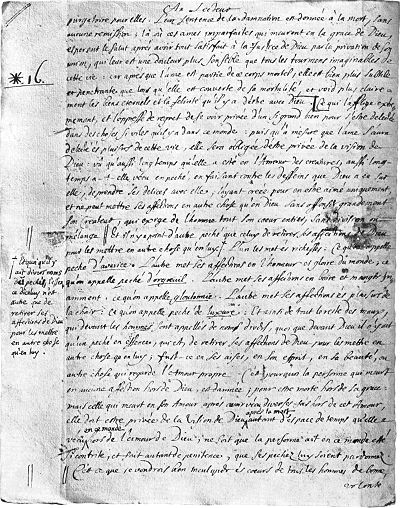 Au Lecteur
purgatoire pour elles. Leur sentence de la damnation est donnee à la mort, sans
aucune remission; là où ces ames imparfaites qui meurent en la grace de Dieu,
esperent le salut aprés avoir tout satisfait à la Justice de Dieu par la privation de son
union, qui leur est une douleur plus sensible que tous les tourmens imaginables de
cette vie: car apres que l'ame est partie de ce corps mortel, elle est bien plus subtile
et penetrante que lors qu'elle est couverte de sa mortalité, et void plus claire
ment les biens eternels et la felicité qu'il y a d'être avec Dieu. Ce qui l'afflige extre
mement, et l'oppresse de regret de se voir privée d'un si grand bien pour s'estre delectée
dans des choses si viles qu'il y a dans ce monde: puis qu'à mesure que l'ame s'aura
delectée és plaisirs de cette vie, elle sera obligée d'estre privée de la vision de
Dieu: vû qu'aussi long temps qu'elle a esté en l'Amour des creatures, aussi long-
temps a-t-elle vécu en peché en faisant contre les desseins que Dieu a eu sur
elle, de prendre ses delices avec elle, l'ayant créée pour en estre aimé uniquement,
et ne peut mettre ses affections en autre chose qu'en Dieu sans offenser grandement
son Createur, qui exige de l'homme tout son coeur entier, sans division ou
mélange. Et il n'y a point d'autre peché que celuy de retirer ses affections de Dieu
pour les mettre en autre chose qu'en luy. L'un les met és richesses: ce qu'on appelle
peché d'avarice. L'autre met ses affections en l'honneur et gloire du monde; ce
qu'on appelle peché d'orgueil. L'autre met ses affections en boire et manger
amment, ce qu'on appelle gloutonnie. L'autre met ses affections és plaisirs de
la chair: ce qu'on appelle peché de luxure. Et ainsi de tout le reste des maux,
qui devant les hommes sont appellés de noms divers, quoi que devant Dieu il n'y ait
qu'un peché en essence, qui est, de retirer ses affections de Dieu pour les mettre en
autre chose qu'en luy; fust-ce en ses aises, en son esprit, en sa beauté, ou
autre chose qui regarde l'amour propre. C'est pourquoy la personne qui meurt
en aucune affection hors de Dieu, est damnée; pour estre morte hors de sa grace
mais celle qui meurt en son Amour apres avoir vécu diverses fois hors de cet Amour,
elle doit estre privée de la Vision de Dieu après la mort autant d'espace de temps qu'elle a
vécu en ce monde hors de l'amour de Dieu; ne soit que la personne ait en ce monde esté
si contrite, et fait autant de penitence, que ses pechez luy soient pardonnez
C'est ce que je voudrois bien inculquer és coeurs de tous les hommes de bonne
volonté
* 16.
† Et quoi qu'il y
ait divers noms
des pechés, le seul
peché n'est
autre que de
retirer ses
affections de Dieu
pour les mettre
en autre chose
qu'en luy.